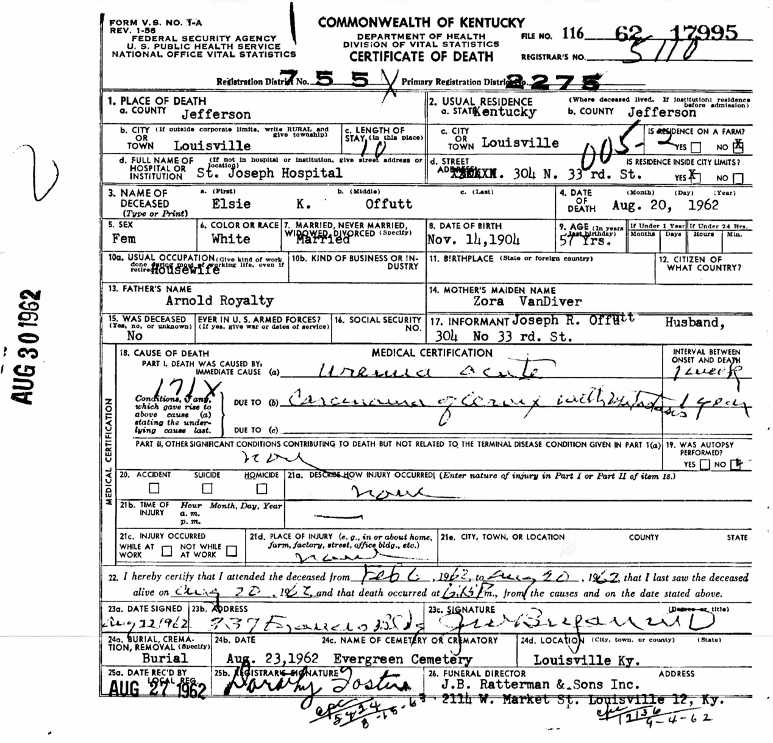 FORM V.S. NO. 1-A
REV. 1-56
FEDERAL SECURITY AGENCY
U. S. PUBLIC HEALTH SERVICE
NATIONAL OFFICE VITAL STATISTICS
COMMONWEALTH OF KENTUCKY
DEPARTMENT OF HEALTH
DIVISION OF VITAL STATISTICS
CERTIFICATE OF DEATH
FILE NO. 116 62 17995
REGISTRAR'S NO. 5110
Registration District No. 755 Primary Registration District No. 2275
1. PLACE OF DEATH
a. COUNTY Jefferson
2. USUAL RESIDENCE (Where deceased lived. If institution: residence before admission)
a. STATE Kentucky b. COUNTY Jefferson
b. CITY (If outside corporate limits, write RURAL and give township)
OR
TOWN Louisville
c. LENGTH OF STAY (in this place)
10
c. CITY
OR
TOWN Louisville
005-2
IS RESIDENCE ON A FARM?
YES NO X
d. FULL NAME OF HOSPITAL OR INSTITUTION (If not in hospital or institution, give street address or location)
St. Joseph Hospital
d. STREET ADDRESS 304 N. 33 rd. St.
IS RESIDENCE INSIDE CITY LIMITS?
YES X NO
3. NAME OF DECEASED (Type or Print)
a. (First) b. (Middle) c. (Last)
Elsie K. Offutt
4. DATE OF DEATH (Month) (Day) (Year)
Aug. 20, 1962
5. SEX
Fem
6. COLOR OR RACE
White
7. MARRIED, NEVER MARRIED, WIDOWED, DIVORCED (Specify)
Married
8. DATE OF BIRTH
Nov. 14,1904
9. AGE (In years last birthday)
57 Yrs.
If Under 1 Year If Under 24 Hrs.
Months Days Hours Min.
10a. USUAL OCCUPATION (Give kind of work done during most of working life, even if retired)
Housewife
10b. KIND OF BUSINESS OR INDUSTRY
11. BIRTHPLACE (State or foreign country)
12. CITIZEN OF WHAT COUNTRY?
13. FATHER'S NAME
Arnold Royalty
14. MOTHER'S MAIDEN NAME
Zora VanDiver
15. WAS DECEASED EVER IN U. S. ARMED FORCES?
(Yes, no, or unknown) (If yes, give war or dates of service)
No
16. SOCIAL SECURITY NO.
17. INFORMANT Joseph R. Offutt Husband,
304 No 33 rd. St.
MEDICAL CERTIFICATION
18. CAUSE OF DEATH MEDICAL CERTIFICATION INTERVAL BETWEEN ONSET AND DEATH
PART I. DEATH WAS CAUSED BY:
IMMEDIATE CAUSE (a) Uremia Acute 1 week
171X
Conditions, if any, which gave rise to above cause (a) stating the underlying cause last.
DUE TO (b) Carcinoma of cervix with metastasis 1 year
DUE TO (c)
PART II. OTHER SIGNIFICANT CONDITIONS CONTRIBUTING TO DEATH BUT NOT RELATED TO THE TERMINAL DISEASE CONDITION GIVEN IN PART 1(a)
none
19. WAS AUTOPSY PERFORMED?
YES NO
20. ACCIDENT SUICIDE HOMICIDE
21a. DESCRIBE HOW INJURY OCCURRED (Enter nature of injury in Part I or Part II of item 18.)
none
21b. TIME OF INJURY Hour Month, Day, Year
a. m.
p. m.
21c. INJURY OCCURRED
WHILE AT WORK NOT WHILE AT WORK
21d. PLACE OF INJURY (e. g., in or about home, farm, factory, street, office bldg., etc.)
none
21e. CITY, TOWN, OR LOCATION COUNTY STATE
22. I hereby certify that I attended the deceased from Feb 6, 1962, to Aug 20, 1962, that I last saw the deceased
alive on Aug 20, 1962 and that death occurred at m., from the causes and on the date stated above.
23a. DATE SIGNED
Aug 22 1962
23b. ADDRESS
23c. SIGNATURE (Degree or title)
24a. BURIAL, CREMATION, REMOVAL (Specify)
Burial
24b. DATE
Aug. 23,1962
24c. NAME OF CEMETERY OR CREMATORY
Evergreen Cemetery
24d. LOCATION (City, town, or county) (State)
Louisville Ky.
25a. DATE REC'D BY LOCAL REG.
AUG 27 1962
25b. REGISTRAR'S SIGNATURE
26. FUNERAL DIRECTOR ADDRESS
J.B. Ratterman & Sons Inc.
2114 W. Market St. Louisville 12, Ky.
AUG 30 1962